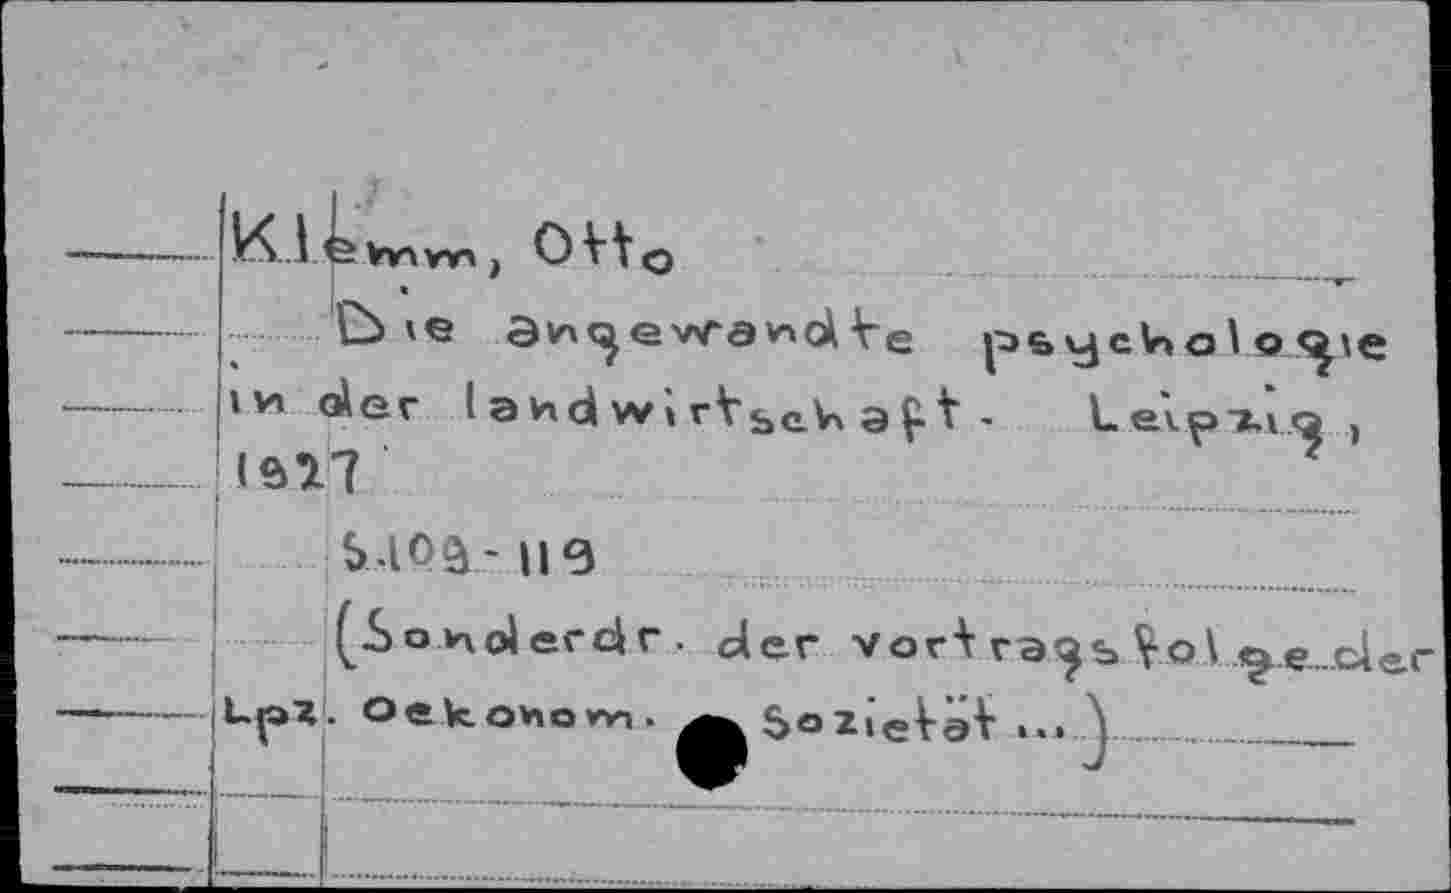 Klemm, Otto
Die angewandte psychologie
in der landwirtschaft. Leipzig,
1927
S.109-119
(Sonderdr. der vortragsfolge der
Lpz. Oekonom. Sozietät ...)